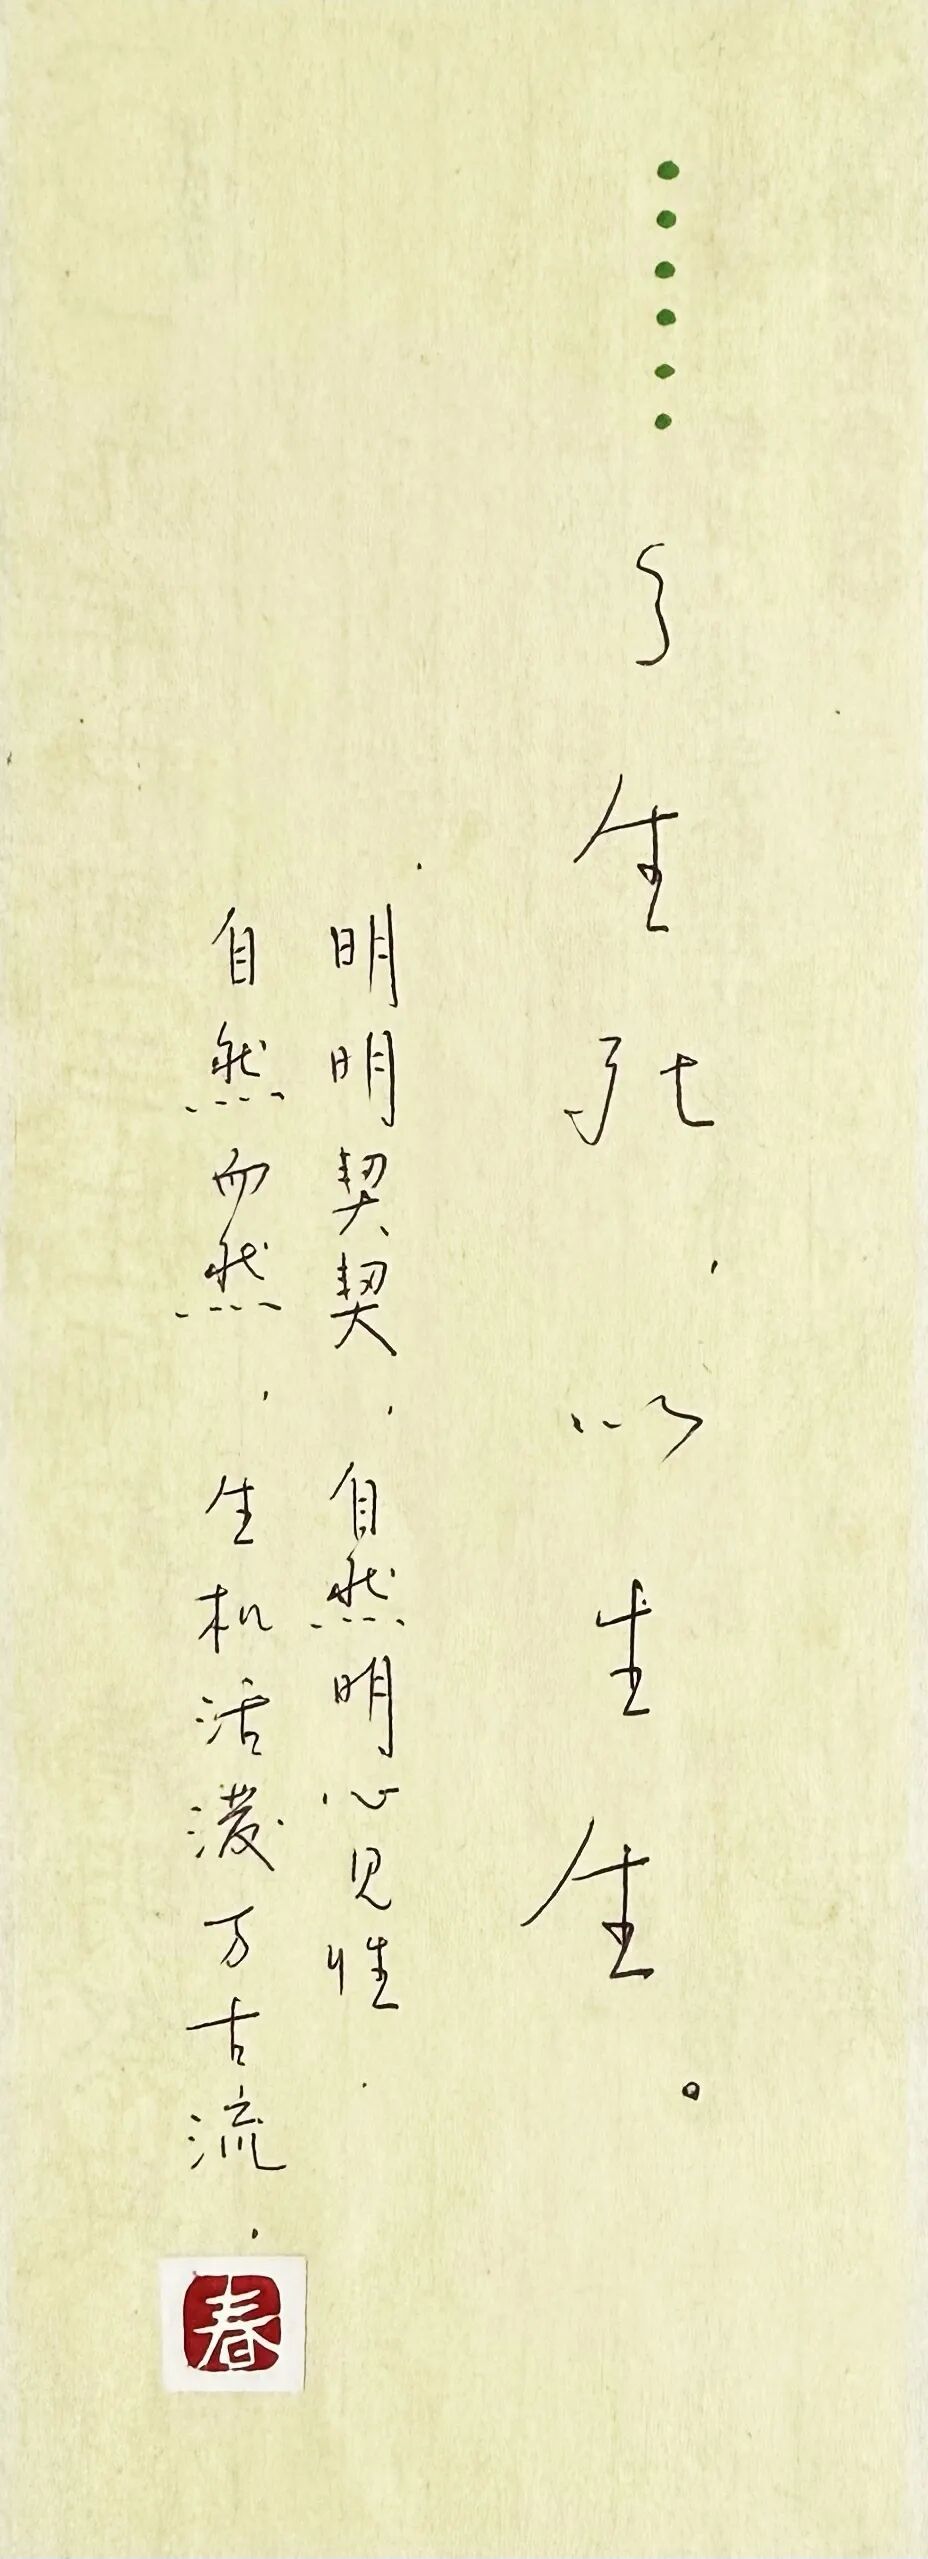 ……了生死，以生生。
明明契契，自然明心见性．
自然而然，生机活泼万古流．
春